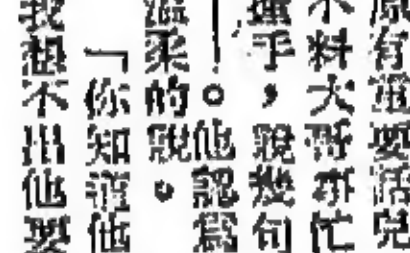 有要話兒
不料大哥忙
手，說幾句
。他認爲
溫柔的說。
「你知道他
我想不出他要